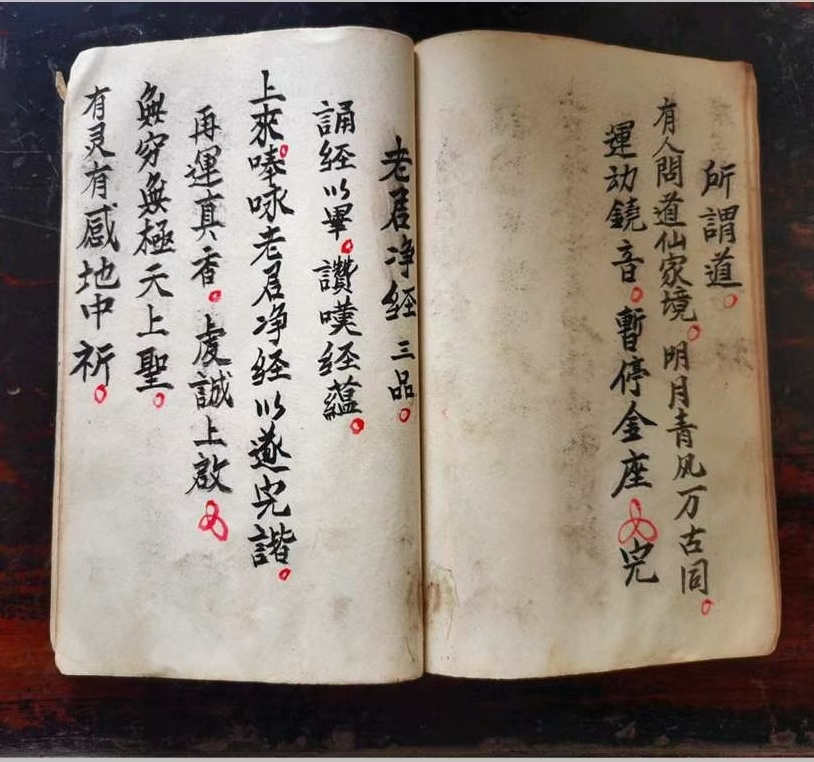 所謂道。
有人問道仙家境。明月青风万古同。
運动鐃音。暫停金座 完
老君净經 三品。
誦經以畢。讚嘆經蘊。
上來。唪咏老君净經以遂完諧。
再運真香。虔誠上啟
無穷無極天上聖。
有灵有感地中祈。